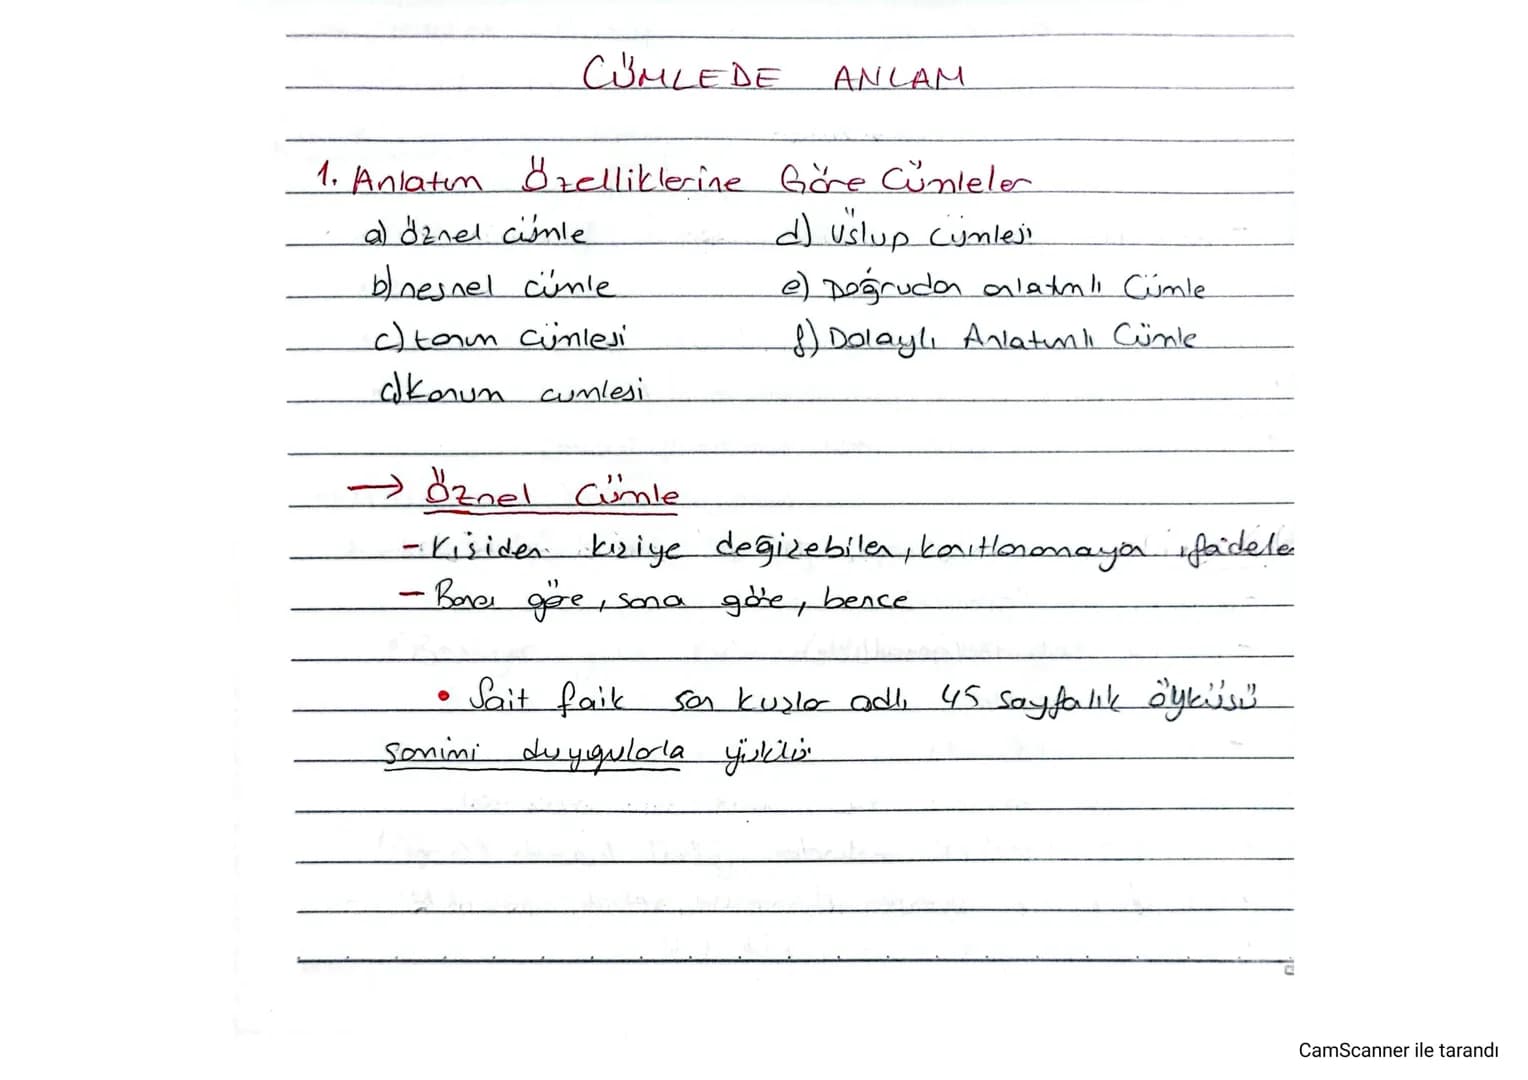 CÜMLEDE ANLAM
1. Anlatım Özelliklerine Göre Cümleler
a) öznel cümle
d) üslup cümlesi
b) nesnel cümle
e) Doğrudan anlatımlı Cümle
c) tanım cümlesi
f) Dolaylı Anlatımlı Cümle
ç) Konum cumlesi
→ Öznel Cümle
- Kişiden kişiye değişebilen, kanıtlanamayan ifadele
- Bana göre, sana göre, bence
• Sait faik son kuşlar adlı 45 sayfalık öyküsü
samimi duygularla yüklü
CamScanner ile tarandı